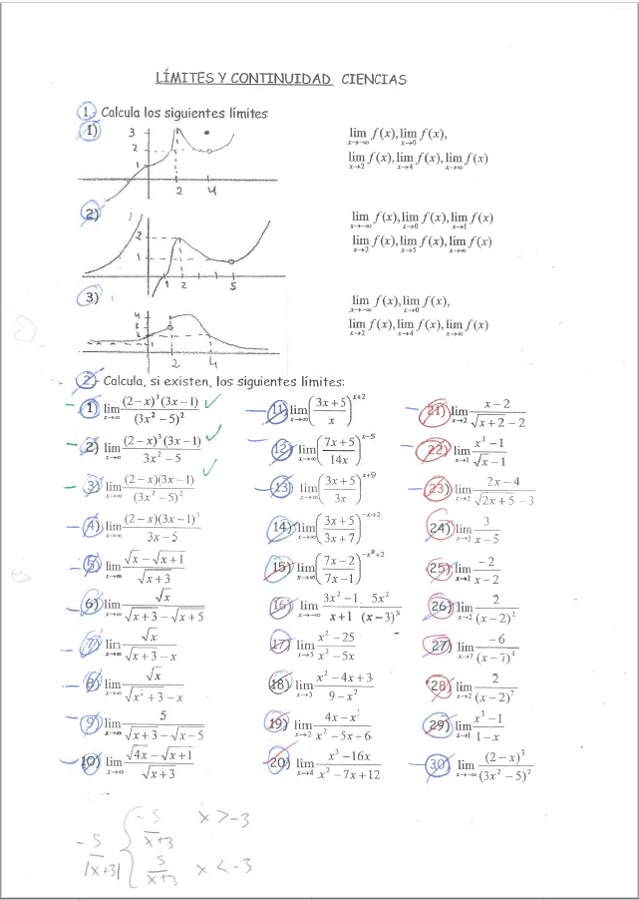 LÍMITES Y CONTINUIDAD CIENCIAS
1.- Calcula los siguientes límites
1) 3 2 1 2 4
lim x→-∞ f(x), lim x→0 f(x),
lim x→2 f(x), lim x→4 f(x), lim x→∞ f(x)
2) 2 1 1 2 5
lim x→-∞ f(x), lim x→0 f(x), lim x→1 f(x)
lim x→2 f(x), lim x→5 f(x), lim x→∞ f(x)
3) 4 3 2 2 4
lim x→-∞ f(x), lim x→0 f(x),
lim x→2 f(x), lim x→4 f(x), lim x→∞ f(x)
2.- Calcula, si existen, los siguientes límites:
1) lim x→∞ (2-x)³(3x-1)/(3x²-5)²
2) lim x→∞ (2-x)³(3x-1)/3x²-5
3) lim x→∞ (2-x)(3x-1)/(3x²-5)²
4) lim x→∞ (2-x)(3x-1)³/3x-5
5) lim x→∞ √x-√x+1/√x+3
6) lim x→∞ √x/√x+3-√x+5
7) lim x→∞ √x/√x+3-x
8) lim x→∞ √x/√x²+3-x
9) lim x→∞ 5/√x+3-√x-5
10) lim x→∞ √4x-√x+1/√x+3
11) lim x→∞ (3x+5/x)^x+2
12) lim x→∞ (7x+5/14x)^x-5
13) lim x→∞ (3x+5/3x)^x+9
14) lim x→∞ (3x+5/3x+7)^-x+2
15) lim x→∞ (7x-2/7x-1)^-x²+2
16) lim x→-∞ 3x²-1/x+1 5x²/(x-3)
17) lim x→5 x²-25/x²-5x
18) lim x→3 x²-4x+3/9-x²
19) lim x→2 4x-x/x²-5x+6
20) lim x→4 x³-16x/x²-7x+12
21) lim x→2 x-2/√x+2-2
22) lim x→1 x²-1/√x-1
23) lim x→2 2x-4/√2x+5-3
24) lim 3/x-5
25) lim x→2 -2/x-2
26) lim x→2 2/(x-2)²
27) lim x→7 -6/(x-7)⁴
28) lim x→2 2/(x-2)⁷
29) lim x→1 x³-1/1-x
30) lim x→-∞ (2-x)³/(3x²-5)²
-5/x+3 x>-3
-5/|x+3|
5/x+3 x<-3